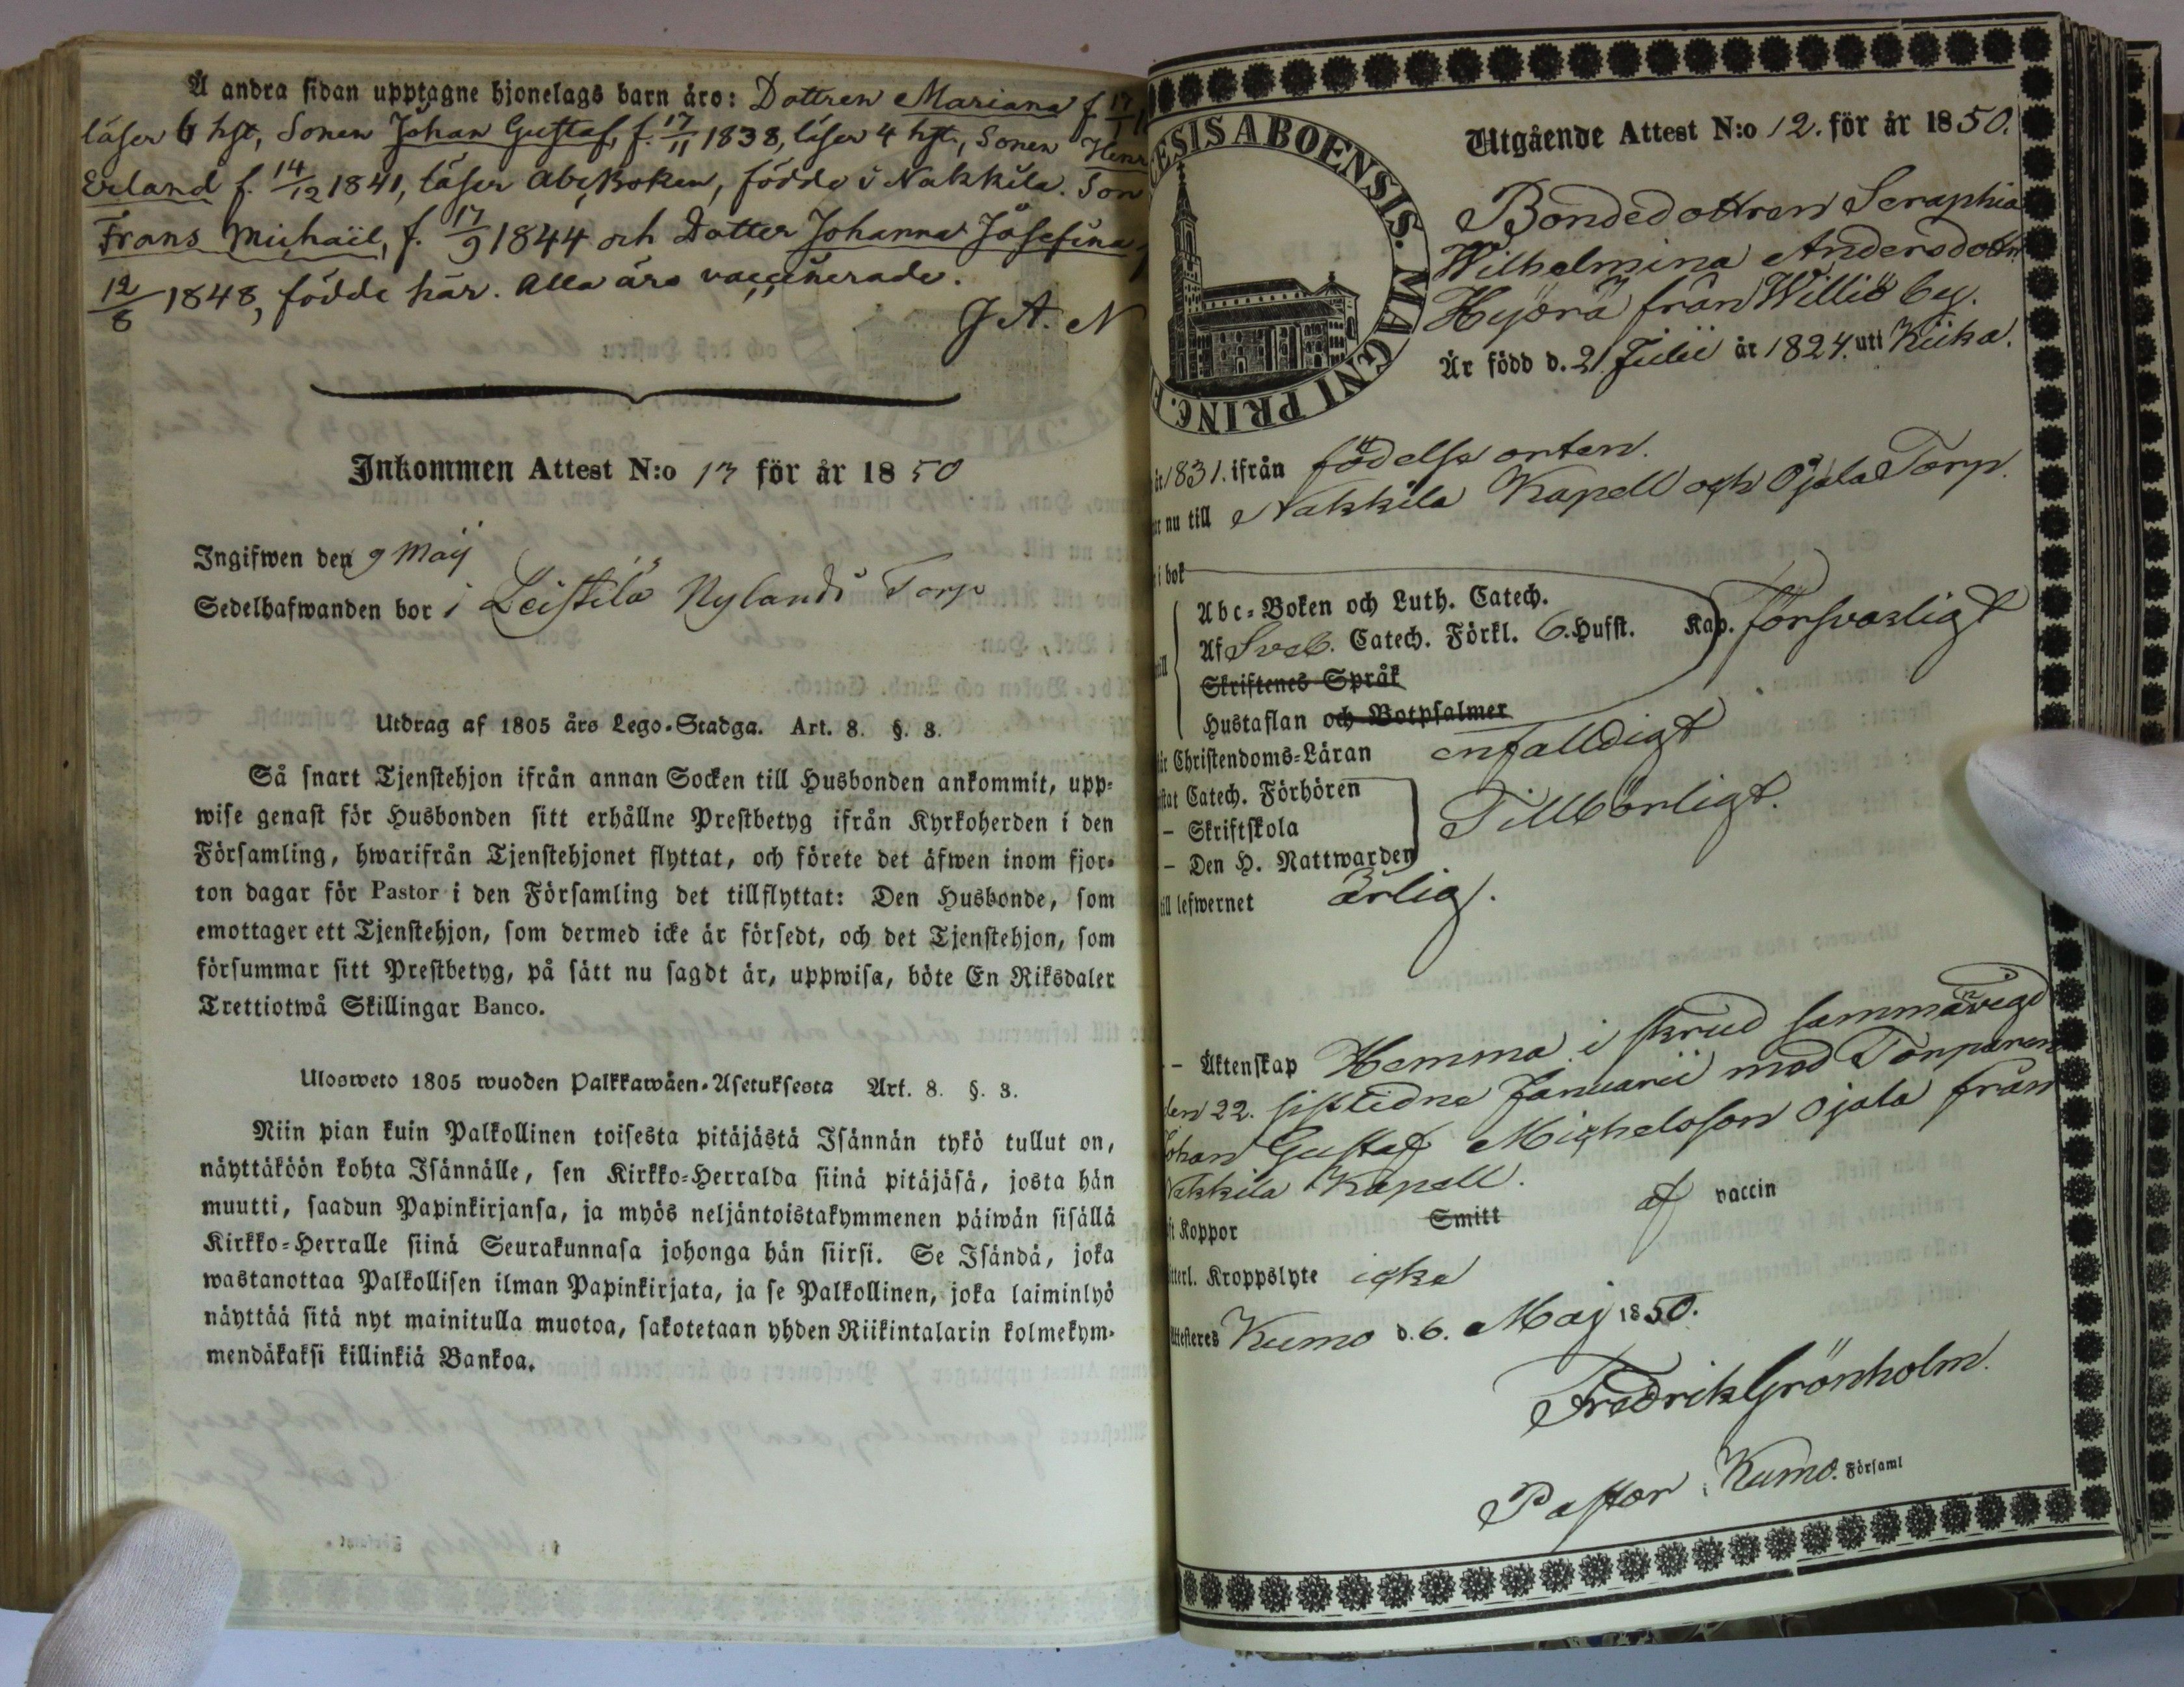 Å andra sidan upptagne hjonelags barn äro: Dottren Mariana f. 17
läser 6 hst, Sonen Johan Gustaf, f. 17/11 1838, läser 4 hst, Sonen Henr
Erland f. 14/12 1841, läser abcboken, födde i Nakkila. Son
Frans Michaël, f. 17/9 1844 och Dotter Johanna Josefina
12/8 1848, födde här. Alla äro vaccinerade.
J. A. N
Inkommen Attest N:o 13 för år 1850
Ingifwen den 9 Maij
Sedelhafwanden bor i Leistilä Nylands Torp
Utdrag af 1805 års Lego-Stadga. Art. 8. §. 3.
Så snart Tjenstehjon ifrån annan Socken till Husbonden ankommit, upp-
wise genast för Husbonden sitt erhållne Prestbetyg ifrån Kyrkoherden i den
Församling, hwarifrån Tjenstehjonet flyttat, och förete det äfwen inom fjor-
ton dagar för Pastor i den Församling det tillflyttat: Den Husbonde, som
emottager ett Tjenstehjon, som dermed icke är försedt, och det Tjenstehjon, som
försummar sitt Prestbetyg, på sätt nu sagdt är, uppwisa, böte En Riksdaler
Trettiotwå Skillingar Banco.
Ulosweto 1805 wuoden Palkkawäen-Asetuksesta Art. 8. §. 3.
Niin pian kuin Palkollinen toisesta pitäjästä Isännän tykö tullut on,
näyttäköön kohta Isännälle, sen Kirkko-Herralda siinä pitäjäsä, josta hän
muutti, saadun Papinkirjansa, ja myös neljäntoistakymmenen päiwän sisällä
Kirkko-Herralle siinä Seurakunnasa johonga hän siirsi. Se Isändä, joka
wastanottaa Palkollisen ilman Papinkirjata, ja se Palkollinen, joka laiminlyö
näyttää sitä nyt mainitulla muotoa, sakotetaan yhden Riikintalarin kolmekym-
mendäkaksi killinkiä Bankoa.
ESIS ABOENSIS. MAGNI PRINC. F
Utgående Attest N:o 12. för år 1850.
Bondedottren Seraphia
Wilhelmina Andersdottr
Hyörä från Williö by.
Är född d. 21 Julii år 1824. uti Kiika.
år 1831. ifrån födelse orten.
ar nu till Nakkila Kapell och Ojala Torp.
i bok
Abc-Boken och Luth. Catech.
Af Sveb. Catech. Förkl. 6. Hufst. Kap. försvarligt
Skriftenes Språk
Hustaflan och Botpsalmer
år Christendoms-Läran enfalldigt
stat Catech. Förhören
– Skriftskola Tillbörligt.
– Den H. Nattwarden
till lefwernet ärlig.
– Äktenskap Hemma i skrud sammanvigd
den 22. sistledne Januarii med Torparen
Johan Gustaf Michelsson Ojala från
Nakkila Kapell.
ft Koppor Smitt af vaccin
tterl. Kroppslyte icke
Attesteres Kumo d. 6. Maj 1850.
Fredrik Grönholm.
Pastor i Kumo. Församl